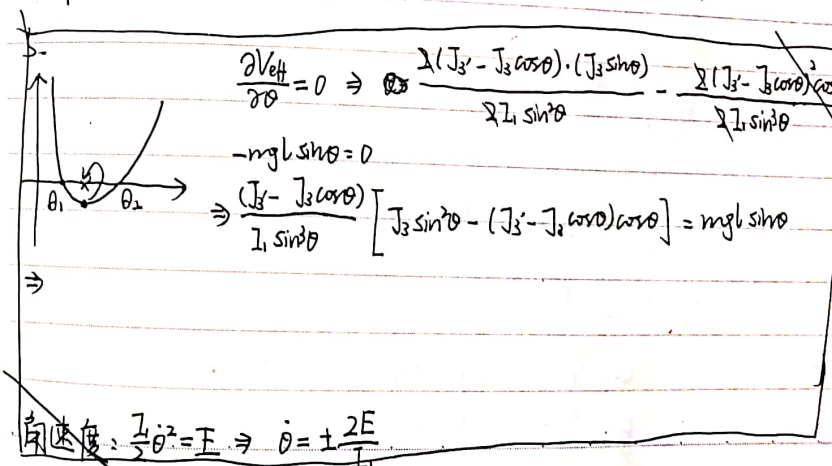 ∂Veff/∂θ = 0 ⇒ 2(J3' - J3 cosθ)·(J3 sinθ) / 2I1 sin²θ - 2(J3' - J3 cosθ)² cos / 2I1 sin³θ
-mgl sinθ = 0
θ1 θ2
⇒ (J3' - J3 cosθ) / I1 sin³θ [J3 sin²θ - (J3' - J3 cosθ) cosθ] = mgl sinθ
⇒
角速度: I1/2 θ̇² = E ⇒ θ̇ = ± 2E/I